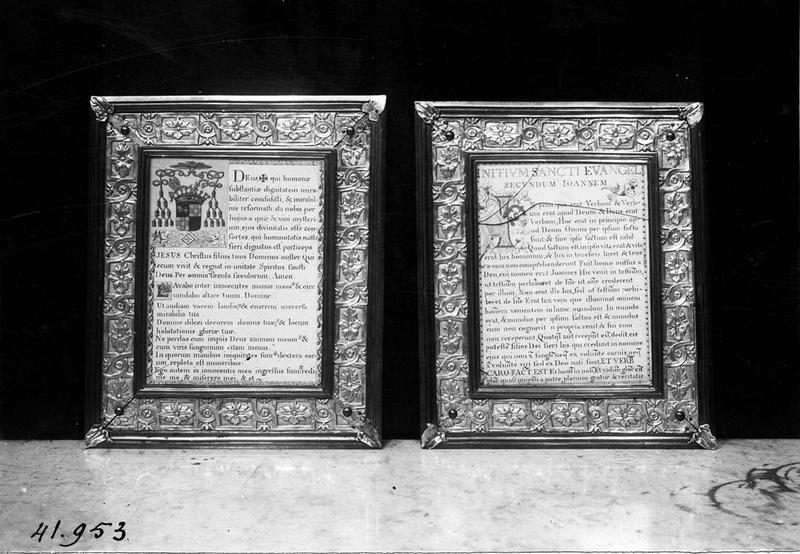 DEus, ✠ qui humanæ
substantiæ dignitatem mira
biliter condidisti, & mirabil
ius reformasti, da nobis per
hujus aquæ & vini mysteri
um, ejus divinitatis esse con
sortes, qui humanitatis nostræ
fieri dignatus est particeps
JESUS Christus filius tuus Dominus noster. Qui
tecum vivit & regnat in unitate Spiritus sancti
Deus. Per omnia sæcula sæculorum. Amen.
Lavabo inter innocentes manus meas & circ
umdabo altare tuum, Domine.
Ut audiam vocem laudis, & enarrem universa
mirabilia tua.
Domine dilexi decorem domus tuæ, & locum
habitationis gloriæ tuæ.
Ne perdas cum impiis Deus animam meam, &
cum viris sanguinum vitam meam.
In quorum manibus iniquitates sunt, dextera eor
um, repleta est muneribus.
Ego autem in innocentia mea ingressus sum, redi
me me, & miserere mei.
INITIVM SANCTI EVANGEL
SECVNDUM IOANNEM
erat Verbum & Verb
um erat apud Deum, & Deus erat
Verbum, Hoc erat in principio ap
ud Deum. Omnia per ipsum facta
sunt & sine ipso factum est nihil
Quod factum est in ipso vita erat & vita
erat lux hominum, & lux in tenebris lucet & tene
bræ eam non comprehenderunt Fuit homo missus a
Deo, cui nomen erat Joannes Hic venit in testium,
ut testium perhiberet de lue ut one crederent
per illum, Non erat ille lux, sed ut testium perhi-
beret de lue Erat lux vera quæ illuminat omnem
hominem venientem in hunc mundum In mundo
erat, & mundus per ipsum factus est & mundus
eum non cognovit in propria venit, & sui eum
non receperunt, Quotqt aut receput eu, dedit eis
potest filios Dei fieri his qui credunt in nomine
ejus qui non
volunte viri sed ex Deo nati sunt, ET VERB
CARO FACT EST Et havit in nob Et vidim glor ei
quasi unigeti a patre, plenum gratiæ & veritatis
41.953